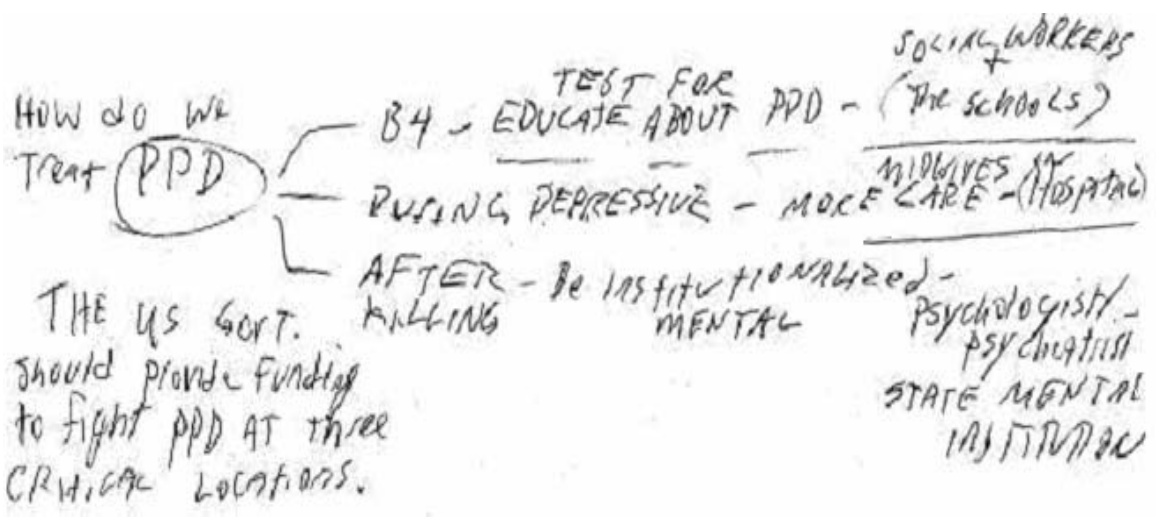 How do we
Treat PPD
B4 - TEST FOR
EDUCATE ABOUT PPD - SOCIAL WORKERS
+
(The schools)
DURING DEPRESSIVE - MORE CARE - MIDWIVES or
(HOSPITAL)
AFTER
KILLING - Be institutionalized -
MENTAL
psychologist/-
psychiatrist
STATE MENTAL
INSTITUTION
THE US GOVT.
should provide funding
to fight PPD AT three
CRITICAL LOCATIONS.